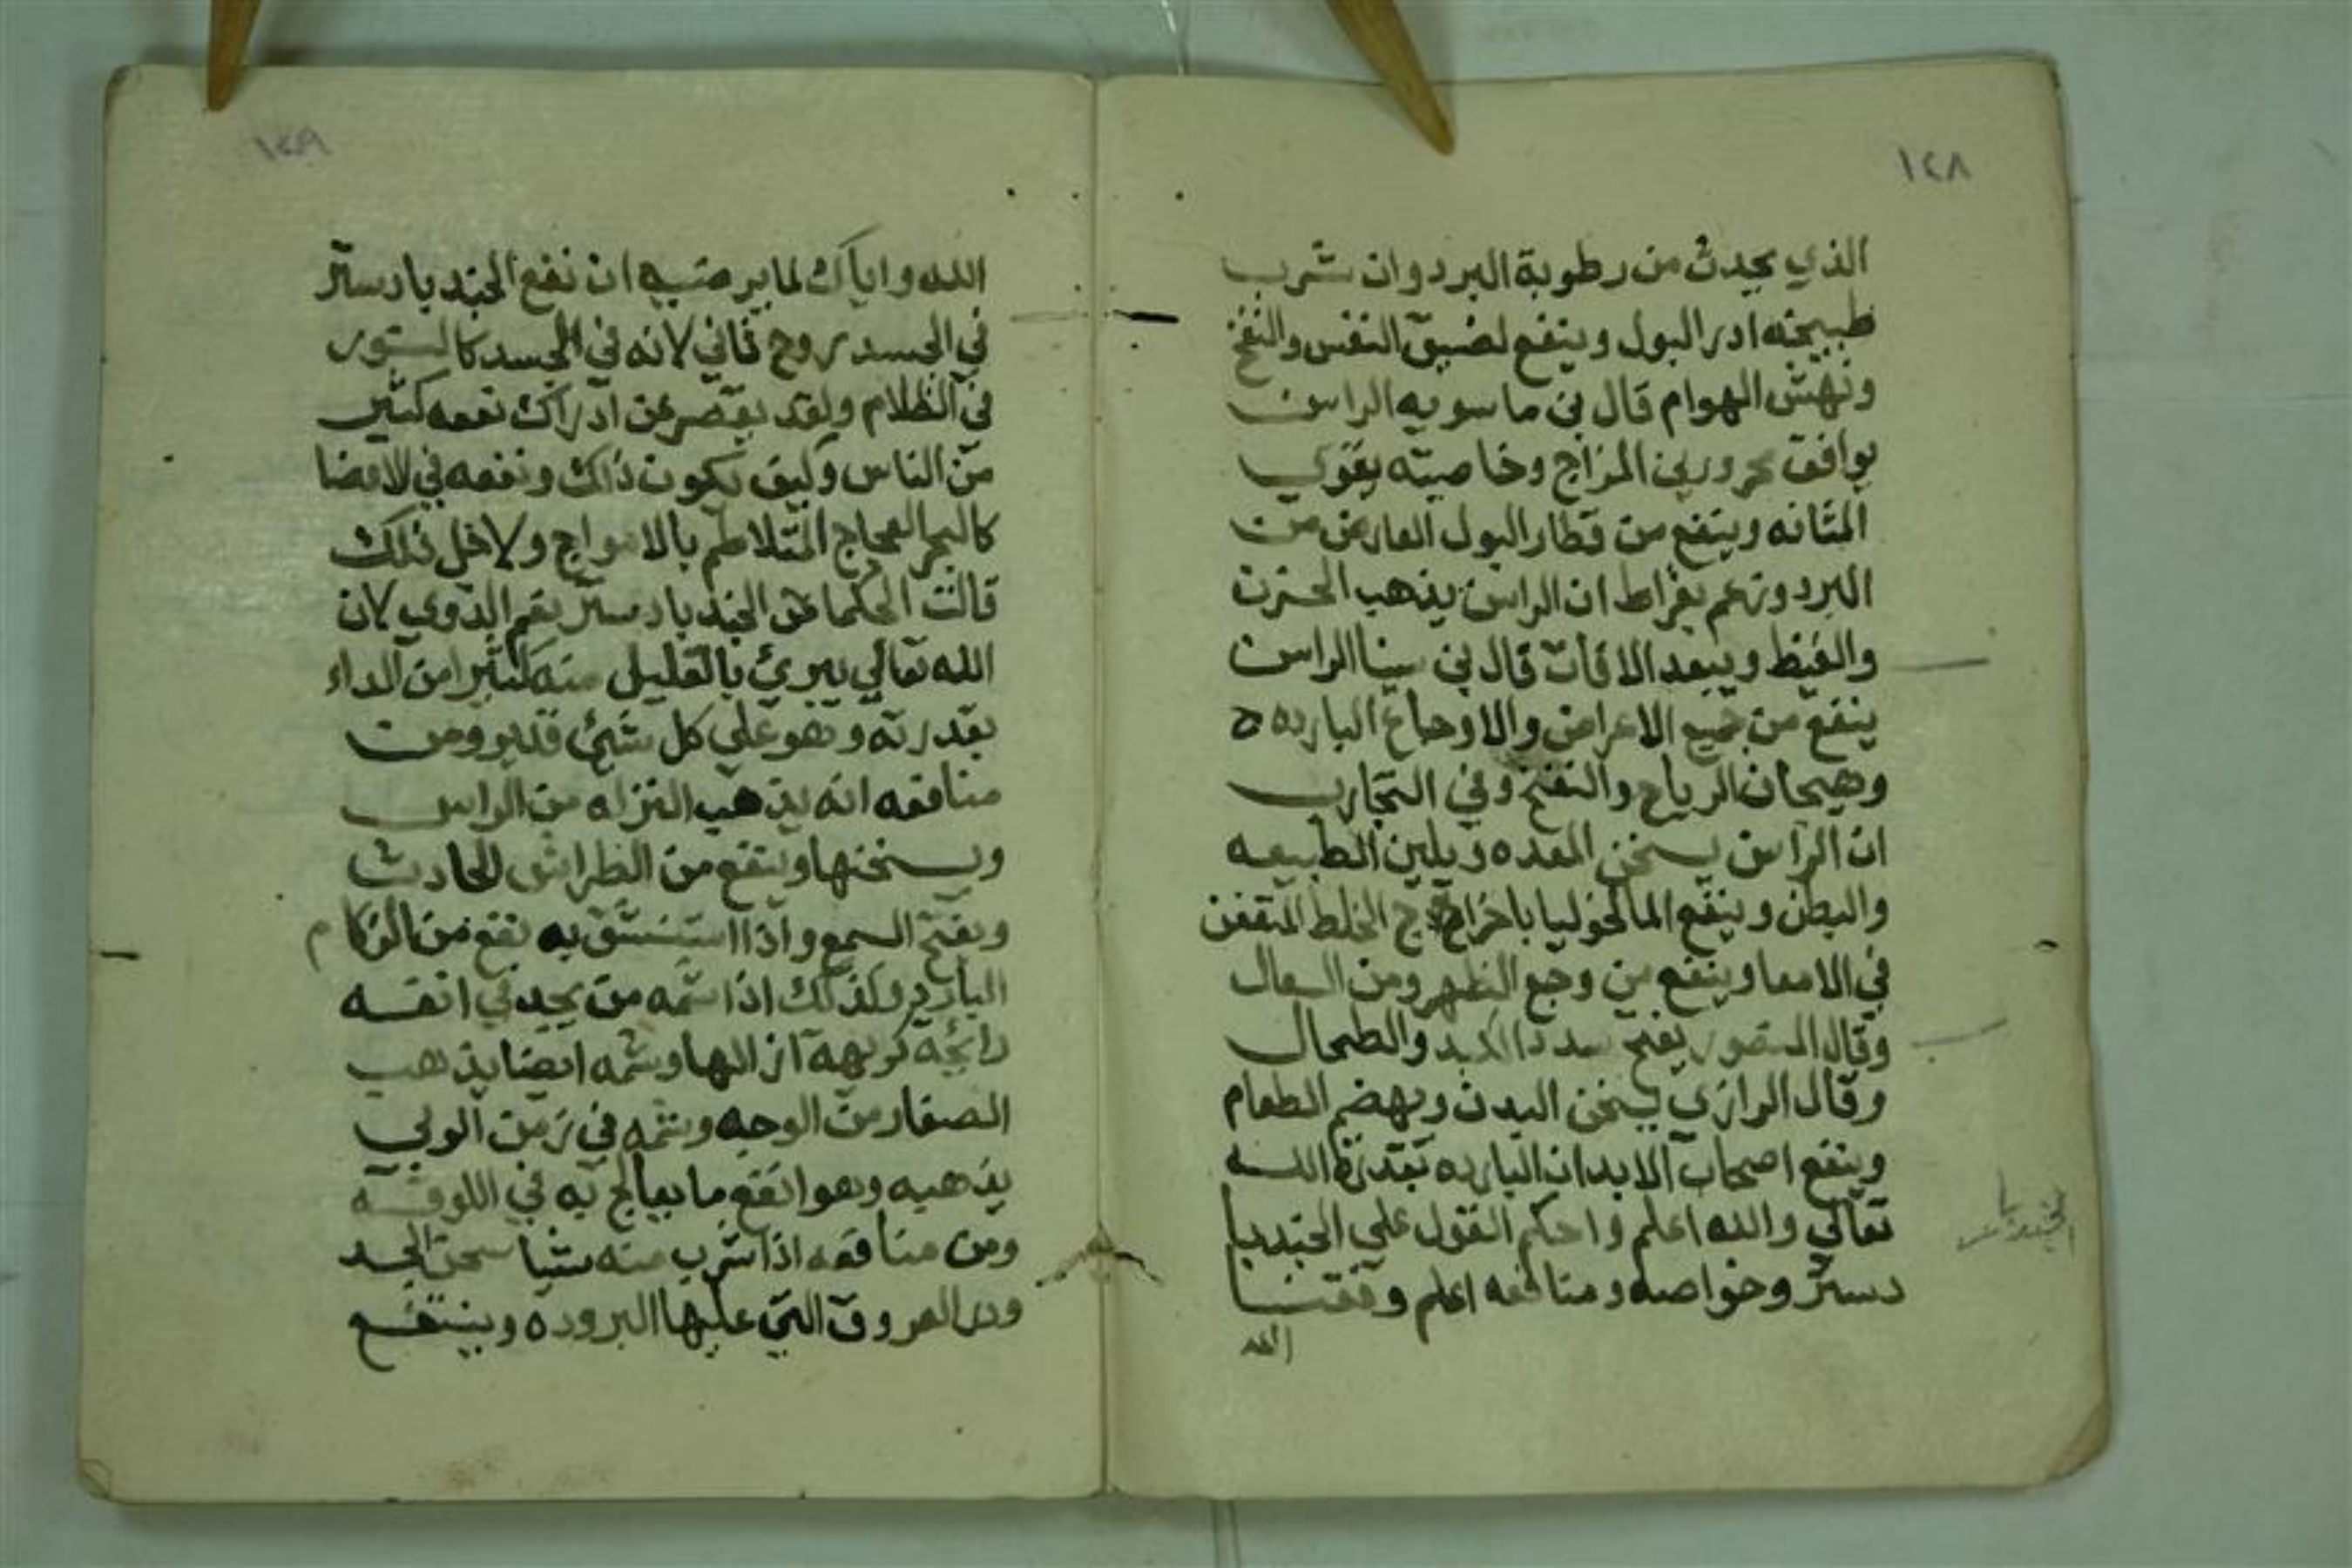 ١٢٨
الذي يحدث من رطوبة البرد وان شرب
طبيخه ادر البول وينفع لضيق النفس والنفخ
ونهش الهوام قال بن ماسويه الراسن
يوافق محرورين المزاج وخاصيته يقوي
المثانه وينفع من قطار البول العارض من
البرد وزعم بقراط ان الراسن يذهب الحزن
والغيظ ويبعد الافات قال بن سينا الراسن
ينفع من جميع الاعراض والاوجاع البارده
وهيجان الرياح والنفخ وفي التجارب
ان الراسن يسخن المعده ويلين الطبيعه
والبطن وينفع المالخوليا باخراج الخلط المتعفن
في الامعا وينفع من وجع الظهر ومن السعال
وقال يفتح سدد الكبد والطحال
وقال الرازي يسخن البدن ويهضم الطعام
وينفع اصحاب الابدان البارده بقدرة الله
تعالي والله اعلم واحكم القول علي الجندبيا
دستر وخواصه ومنافعه اعلم وفقنا
الله
١٢٩
الله واياك لما يرضيه ان نفع الجندبيادستر
في الجسد روح ثاني لانه في الجسد كالنور
في الظلام ولقد يقصر عن ادراك نفعه كثير
من الناس وكيف يكون ذلك ونفعه في الاعضا
كالبحر العجاج المتلاطم بالامواج ولاجل ذلك
قالت الحكما الجندبيادستر الدوي لان
الله تعالي يبري بالقليل منه كثيرا من الداء
بقدرته وهو علي كل شئ قدير ومن
منافعه انه يذهب النزله من الراس
ويسخنها وينفع من الطراش الحادث
ويفتح السمع واذا استنشق به نفع من الزكام
البارد وكذلك اذا شمه من يجد في انفه
رائحة كريهة ازالها وشمه ايضا يذهب
الصفار من الوجه وشمه في زمن الوبي
يذهبه وهو انفع ما يعالج به في اللوقه
ومن منافعه اذا شرب منه شيا سخن الجسد
العروق التي عليها البروده وينفع